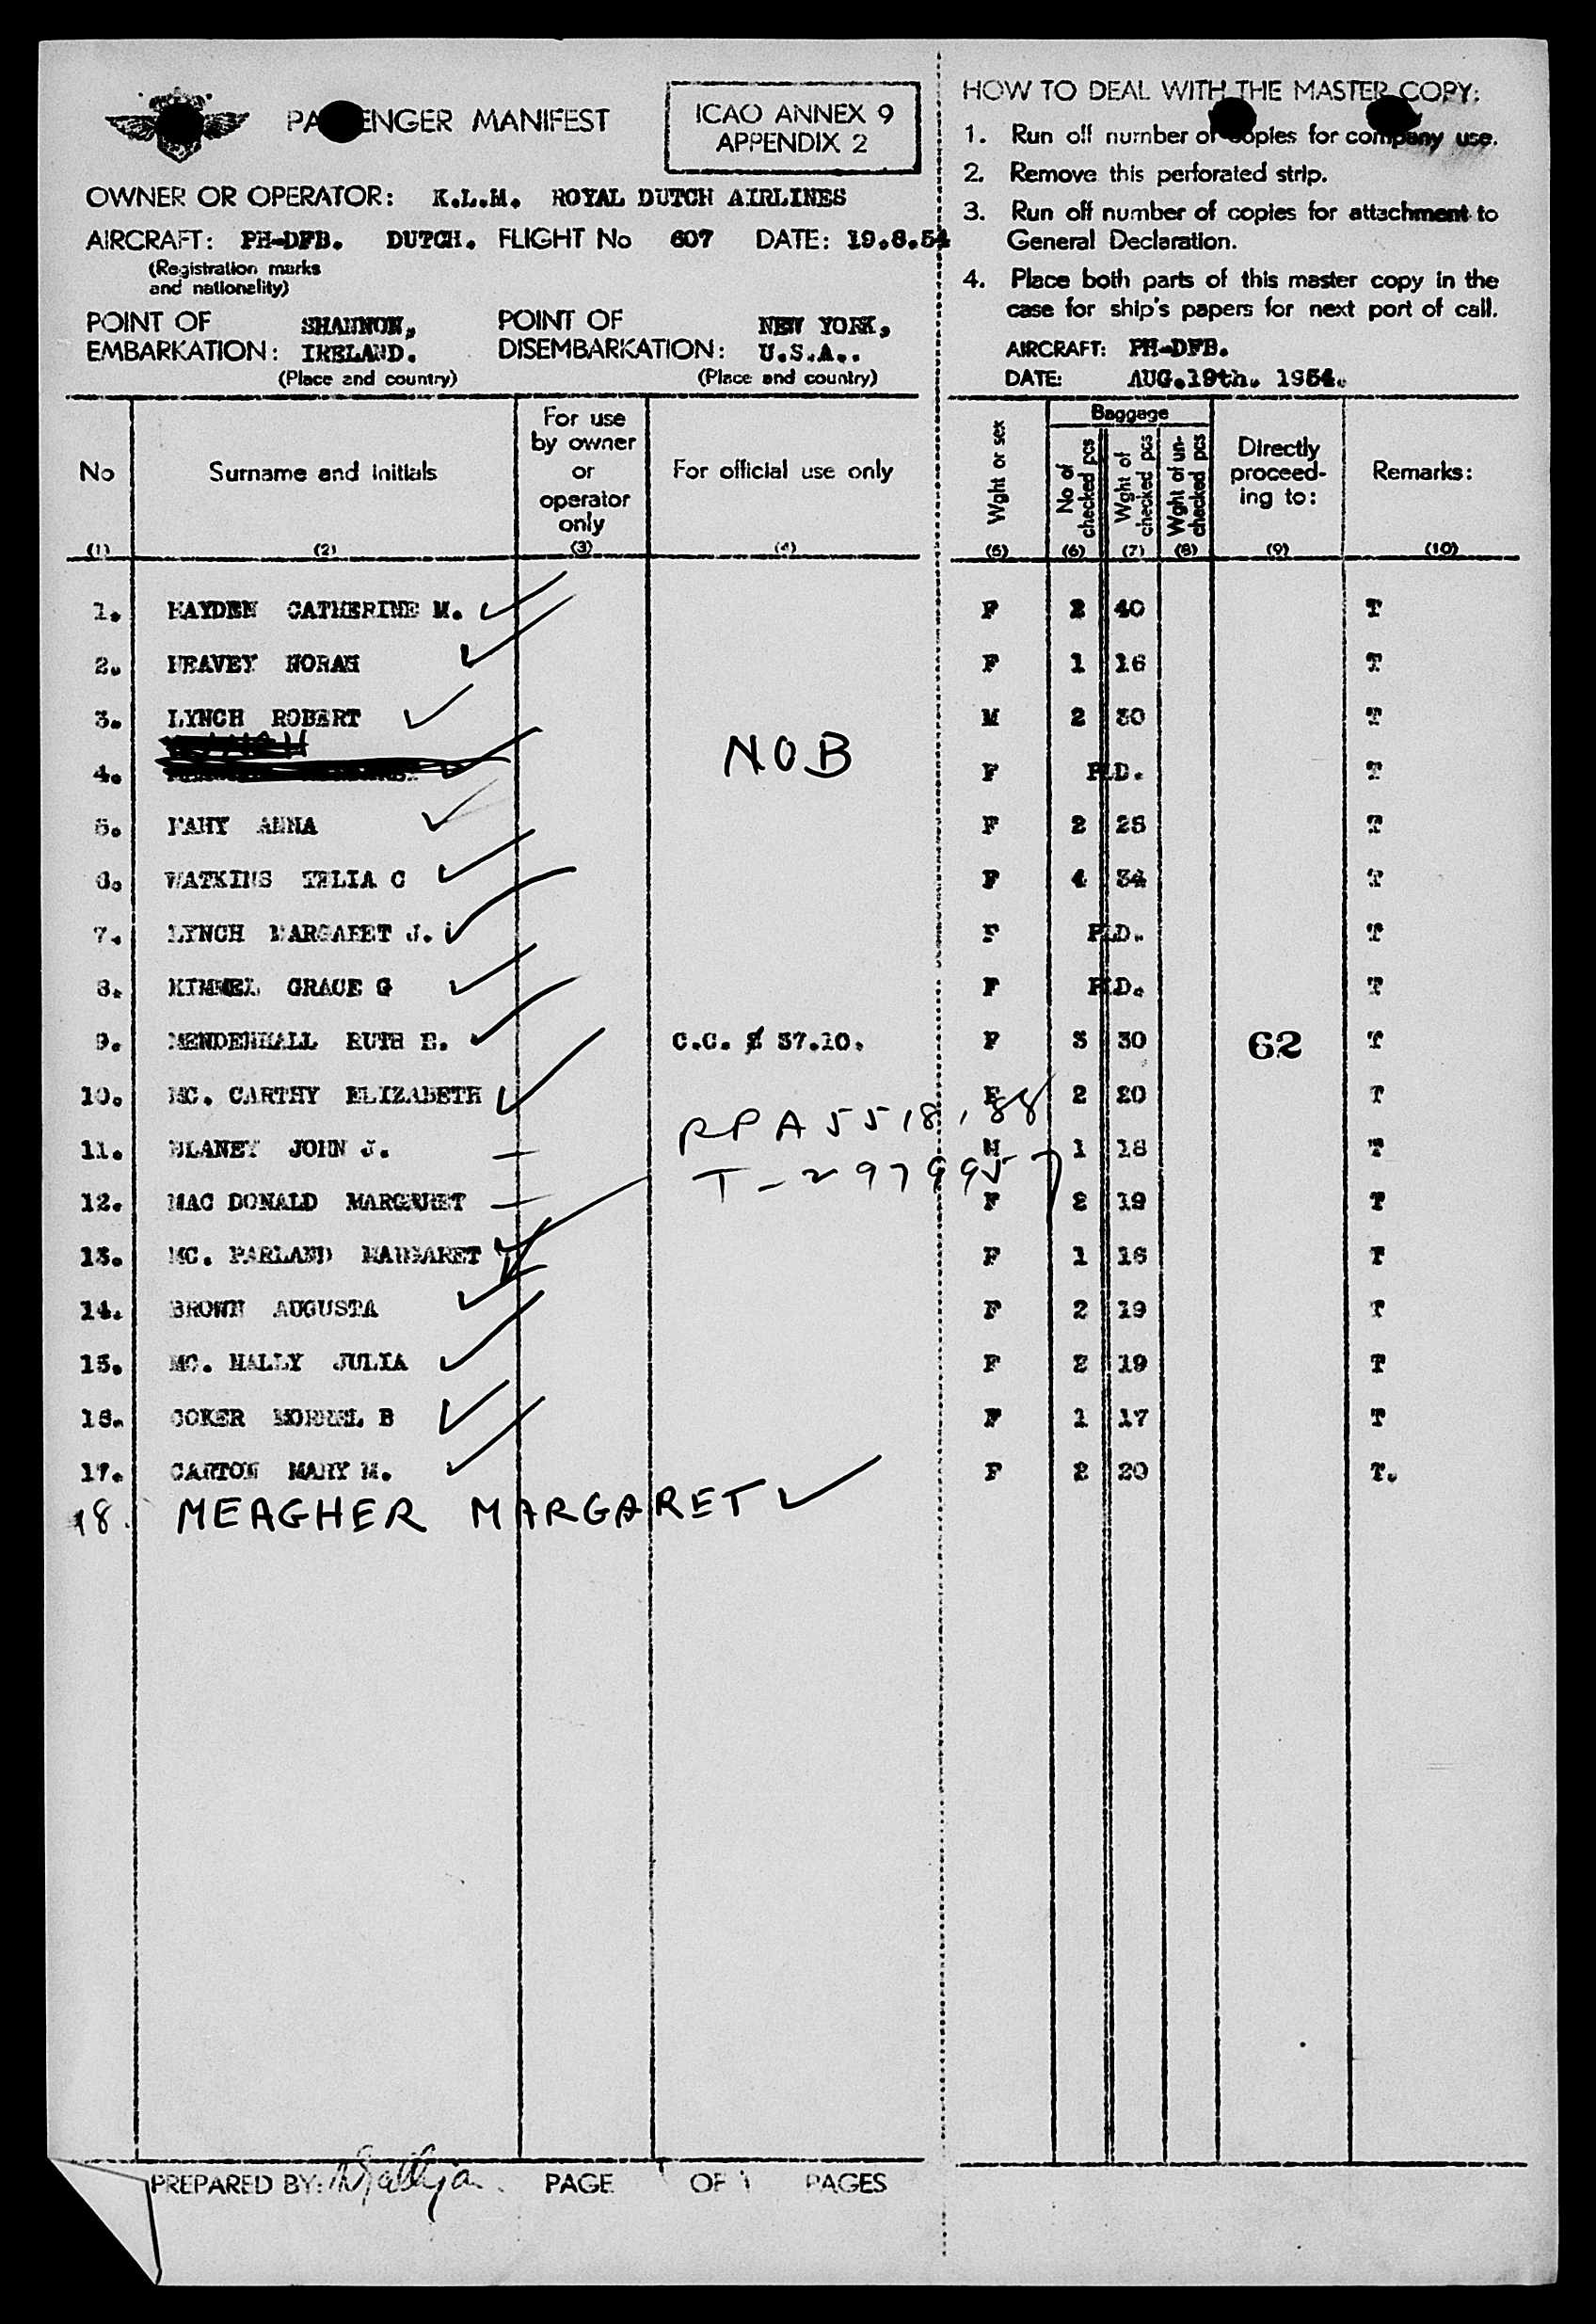 PASSENGER MANIFEST
ICAO ANNEX 9
APPENDIX 2
OWNER OR OPERATOR: K.L.M. ROYAL DUTCH AIRLINES
AIRCRAFT: PH-DFB. DUTCH. FLIGHT No 607 DATE: 19.8.54
(Registration marks
and nationality)
POINT OF EMBARKATION: SHANNON, IRELAND.
(Place and country)
POINT OF DISEMBARKATION: NEW YORK, U.S.A..
(Place and country)
HOW TO DEAL WITH THE MASTER COPY:
1. Run off number of copies for company use.
2. Remove this perforated strip.
3. Run off number of copies for attachment to
General Declaration.
4. Place both parts of this master copy in the
case for ship's papers for next port of call.
AIRCRAFT: PH-DFB.
DATE: AUG.19th. 1954.
No
(1)
Surname and initials
(2)
For use
by owner
or
operator
only
(3)
For official use only
(4)
Wght or sex
(5)
Baggage
No of
checked pcs
(6)
Wght of
checked pcs
(7)
Wght of un-
checked pcs
(8)
Directly
proceed-
ing to:
(9)
Remarks:
(10)
1. HAYDEN CATHERINE M. F 2 40 T
2. HEAVEY NORAH F 1 16 T
3. LYNCH ROBERT M 2 30 T
4. NOB F PLD. T
5. FAHY ANNA F 2 25 T
6. WATKINS C F 4 34 T
7. LYNCH MARGARET J. F PLD. T
8. KIMMEL GRACE G F PLD. T
9. MENDENHALL RUTH E. C.C. $ 37.10. F 3 30 62 T
10. MC. CARTHY ELIZABETH F 2 20 T
RPA 5518,88
11. BLANEY JOHN J. M 1 18 T
T-297995
12. MAC DONALD MARGARET F 2 19 T
13. MC. PARLAND MARGARET F 1 16 T
14. BROWN AUGUSTA F 2 19 T
15. MC. NALLY JULIA F 2 19 T
16. COKER B F 1 17 T
17. CARTON MARY M. F 2 20 T.
18. MEAGHER MARGARET
PREPARED BY: PAGE 1 OF 1 PAGES